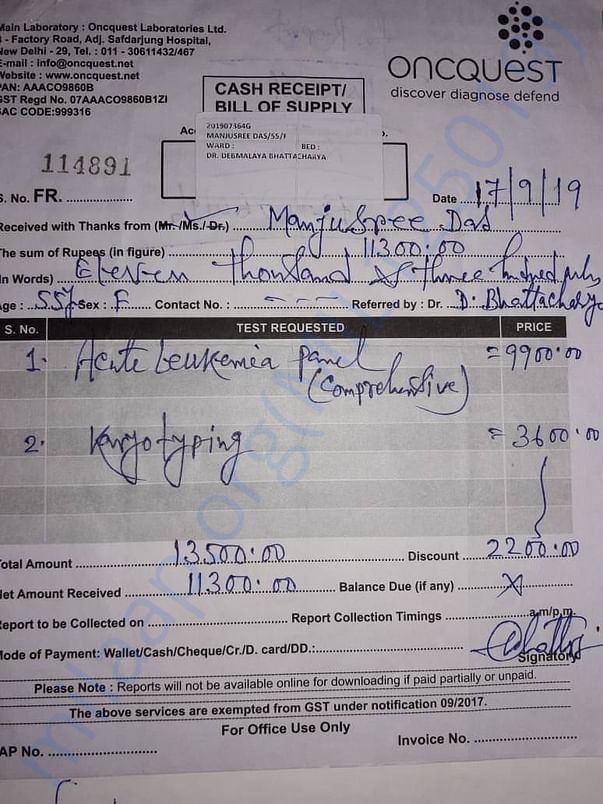 Main Laboratory : Oncquest Laboratories Ltd.
- Factory Road, Adj. Safdarjung Hospital,
New Delhi - 29, Tel. : 011 - 30611432/467
E-mail : info@oncquest.net
Website : www.oncquest.net
PAN: AAACO9860B
GST Regd No. 07AAACO9860B1ZI
SAC CODE:999316
ONCQUEST
discover diagnose defend
CASH RECEIPT/
BILL OF SUPPLY
201907364G
MANJUSREE DAS/55/F
WARD : BED :
DR. DEBMALAYA BHATTACHARYA
114891
S. No. FR. Date 17/9/19
Received with Thanks from (Mr./Ms./Dr.) Manjusree Das
The sum of Rupees (In figure) 11300.00
(In Words) Eleven thousand & three hundred only
Age : 55y Sex : F Contact No. : - - - Referred by : Dr. D. Bhattacharya
S. No. TEST REQUESTED PRICE
1. Acute Leukemia panel = 9900.00
(Comprehensive)
2. Karyotyping = 3600.00
Total Amount 13500.00 Discount 2200.00
Net Amount Received 11300.00 Balance Due (if any) X
Report to be Collected on Report Collection Timings a.m/p.m.
Mode of Payment: Wallet/Cash/Cheque/Cr./D. card/DD.:
Signatory
Please Note : Reports will not be available online for downloading if paid partially or unpaid.
The above services are exempted from GST under notification 09/2017.
For Office Use Only
AP No. Invoice No.